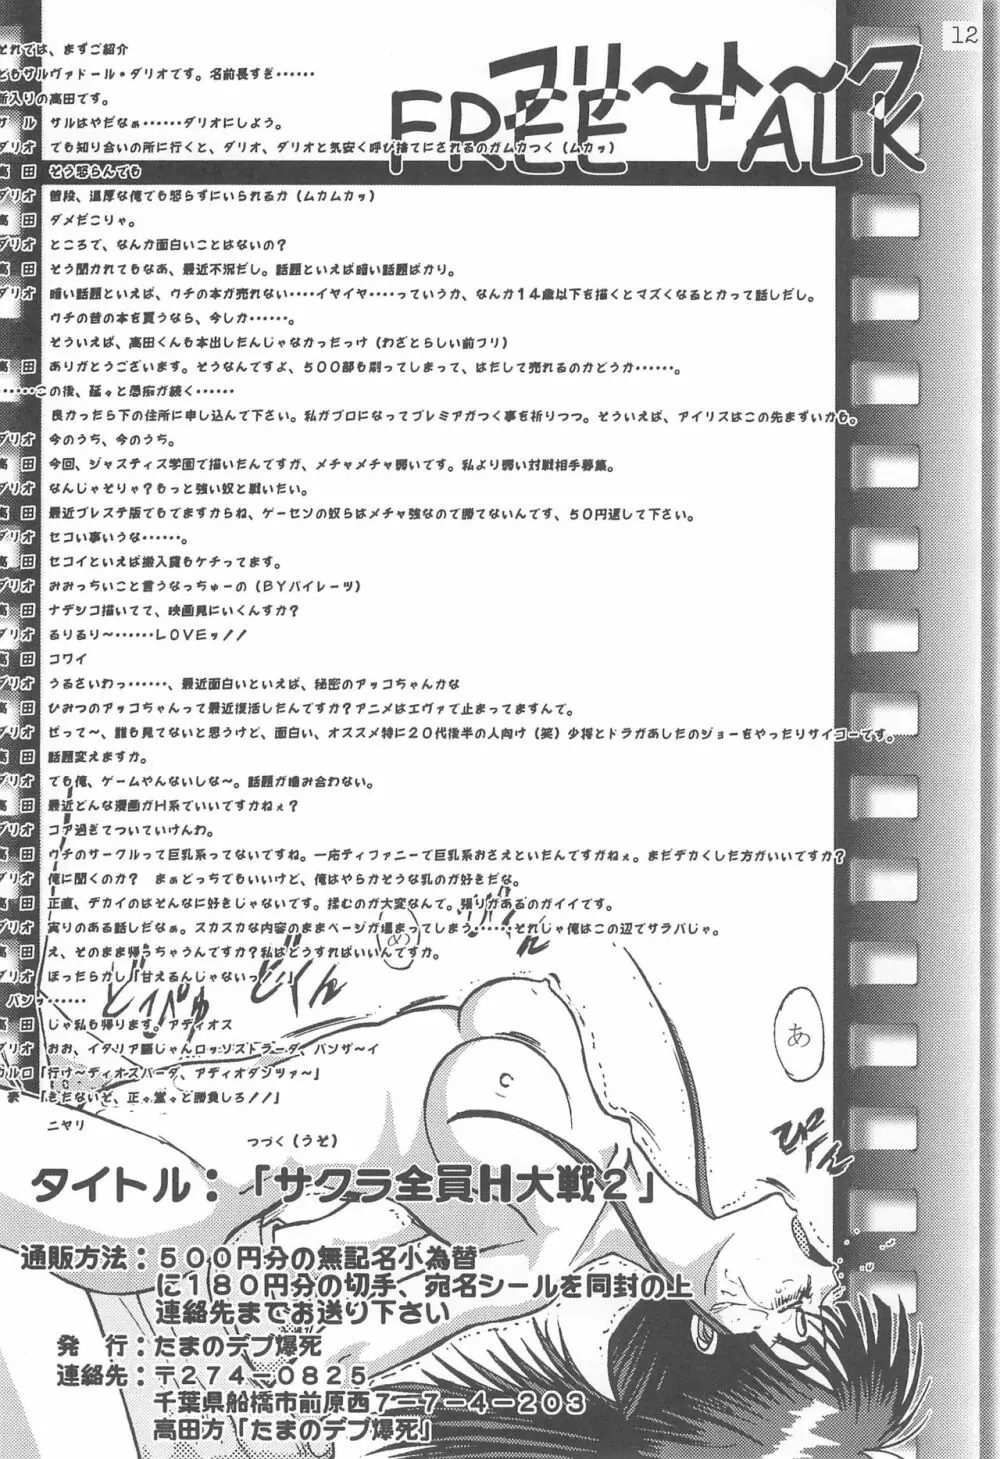 12
フリ～ト～ク
FREE TALK
それでは、まずご紹介
どもサルヴァドール・ダリオです。名前長すぎ‥‥‥
新入りの高田です。
サル サルはやだなぁ‥‥‥ダリオにしよう。
ダリオ でも知り合いの所に行くと、ダリオ、ダリオと気安く呼び捨てにされるのがムカつく（ムカッ）
高田 そう怒らんでも
ダリオ 普段、温厚な俺でも怒らずにいられるか（ムカムカッ）
高田 ダメだこりゃ。
ダリオ ところで、なんか面白いことはないの？
高田 そう聞かれてもなあ、最近不況だし。話題といえば暗い話題ばかり。
ダリオ 暗い話題といえば、ウチの本が売れない‥‥イヤイヤ‥‥っていうか、なんか１４歳以下を描くとマズくなるとかって話しだし。
ウチの昔の本を買うなら、今しか‥‥‥。
そういえば、高田くんも本出したんじゃなかったっけ（わざとらしい前フリ）
高田 ありがとうございます。そうなんですよ、５００部も刷ってしまって、はだして売れるのかどうか‥‥‥。
‥‥‥この後、延々と愚痴が続く‥‥‥
良かったら下の住所に申し込んで下さい。私がプロになってプレミアがつく事を祈りつつ。そういえば、アイリスはこの先まずいかも。
ダリオ 今のうち、今のうち。
高田 今回、ジャスティス学園で描いたんですが、メチャメチャ弱いです。私より弱い対戦相手募集。
ダリオ なんじゃそりゃ？もっと強い奴と戦いたい。
高田 最近プレステ版もでてますからね、ゲーセンの奴らはメチャ強なので勝てないんです、５０円返して下さい。
ダリオ セコい事いうな‥‥‥。
高田 セコイといえば搬入費もケチってます。
ダリオ みみっちいこと言うなっちゅーの（ＢＹパイレーツ）
高田 ナデシコ描いてて、映画見にいくんすか？
ダリオ るりるり～‥‥‥ＬＯＶＥッ！！
高田 コワイ
ダリオ うるさいわっ‥‥‥、最近面白いといえば、秘密のアッコちゃんかな
高田 ひみつのアッコちゃんって最近復活したんですか？アニメはエヴァで止まってますんで。
ダリオ ぜって～、誰も見てないと思うけど、面白い、オススメ特に２０代後半の人向け（笑）少将とドラがあしたのジョーをやったりサイコーです。
高田 話題変えますか。
ダリオ でも俺、ゲームやんないしな～。話題が噛み合わない。
高田 最近どんな漫画がＨ系でいいですかねぇ？
ダリオ コア過ぎてついていけんわ。
高田 ウチのサークルって巨乳系ってないですね。一応ティファニーで巨乳系おさえといたんですがねぇ。まだデカくした方がいいですか？
ダリオ 俺に聞くのか？ まぁどっちでもいいけど、俺はやらかそうな乳のが好きだな。
高田 正直、デカイのはそんなに好きじゃないです。揉むのが大変なんで。張りがあるのがイイです。
ダリオ 実りのある話しだなぁ。スカスカな内容のままページが埋まってしまう‥‥‥それじゃ俺はこの辺でサラバじゃ。
高田 え、そのまま帰っちゃうんですか？私はどうすればいいんですか。
ダリオ ほったらかし「甘えるんじゃないっ！！」
バンッ‥‥‥
高田 じゃ私も帰ります。アディオス
ダリオ おお、イタリア語じゃんロッソストラーダ、バンザ～イ
カルロ「行け～ディオスパーダ、アディオダンツァ～」
豪「きたないぞ、正々堂々と勝負しろ！！」
ニヤリ
つづく（うそ）
め
あ
タイトル：「サクラ全員Ｈ大戦２」
通販方法：５００円分の無記名小為替
に１８０円分の切手、宛名シールを同封の上
連絡先までお送り下さい
発 行：たまのデブ爆死
連絡先：〒２７４－０８２５
千葉県船橋市前原西７－７－４－２０３
高田方「たまのデブ爆死」